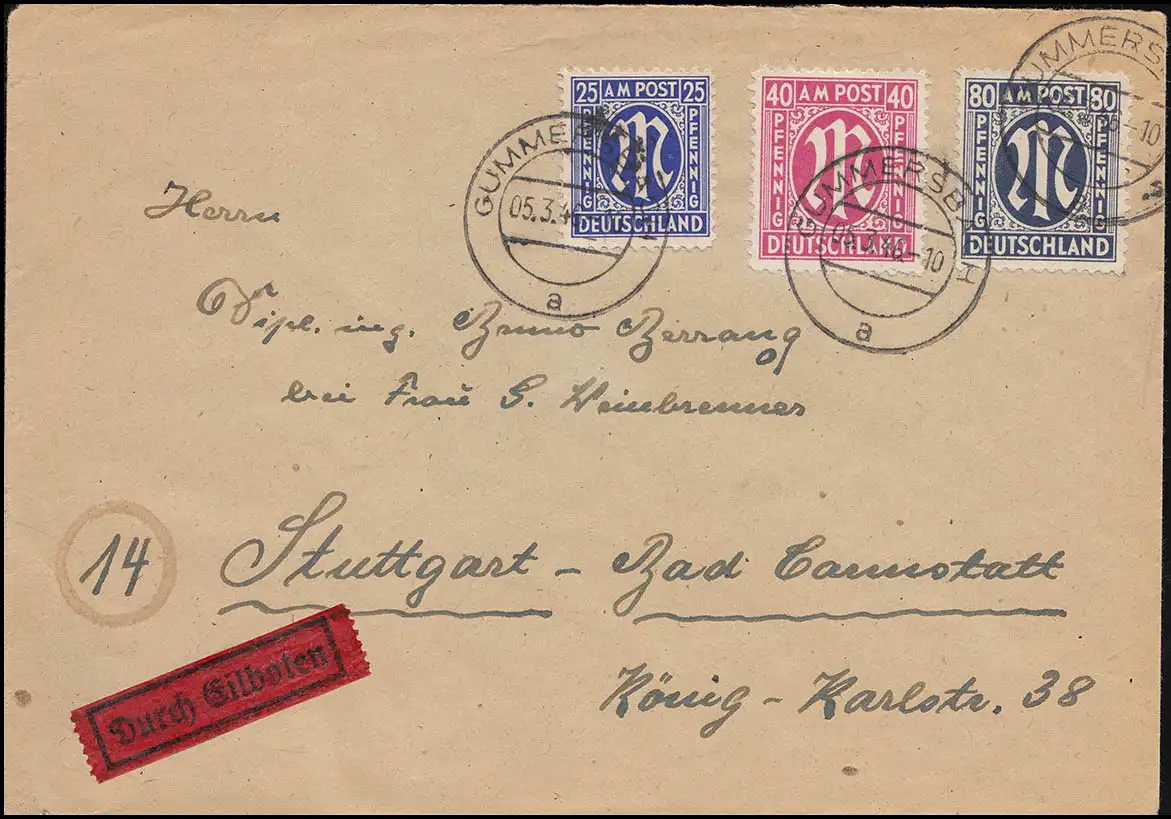 25 AM POST 25
PFENNIG M PFENNIG
DEUTSCHLAND
40 AM POST 40
PFENNIG M PFENNIG
DEUTSCHLAND
80 AM POST 80
PFENNIG M PFENNIG
DEUTSCHLAND
GUMMERSB
05.3.46
a
GUMMERSB
05.3.46-10
a
GUMMERS
6-10
a
Herrn
Dipl. ing. Bruno Berrang
bei Frau G. Weinbrenner
14 Stuttgart - Bad Cannstatt
König-Karlstr. 38
Durch Eilboten